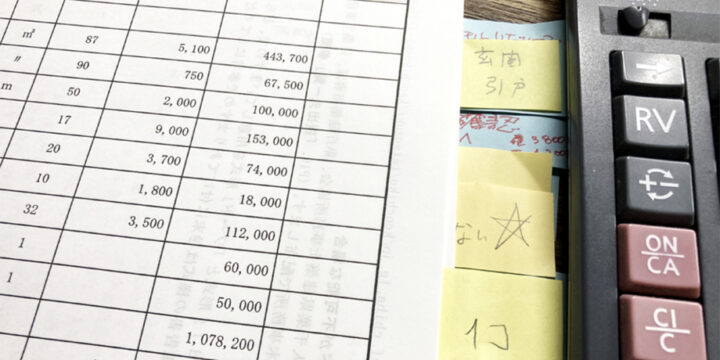 ㎡ 87 5,100 443,700
〃 90 750 67,500
m 50 2,000 100,000
17 9,000 153,000
20 3,700 74,000
10 1,800 18,000
32 3,500 112,000
1 60,000
1 50,000
1,078,200
玄関
引戸
確認
ない ☆
RV
ON
CA
CI
C